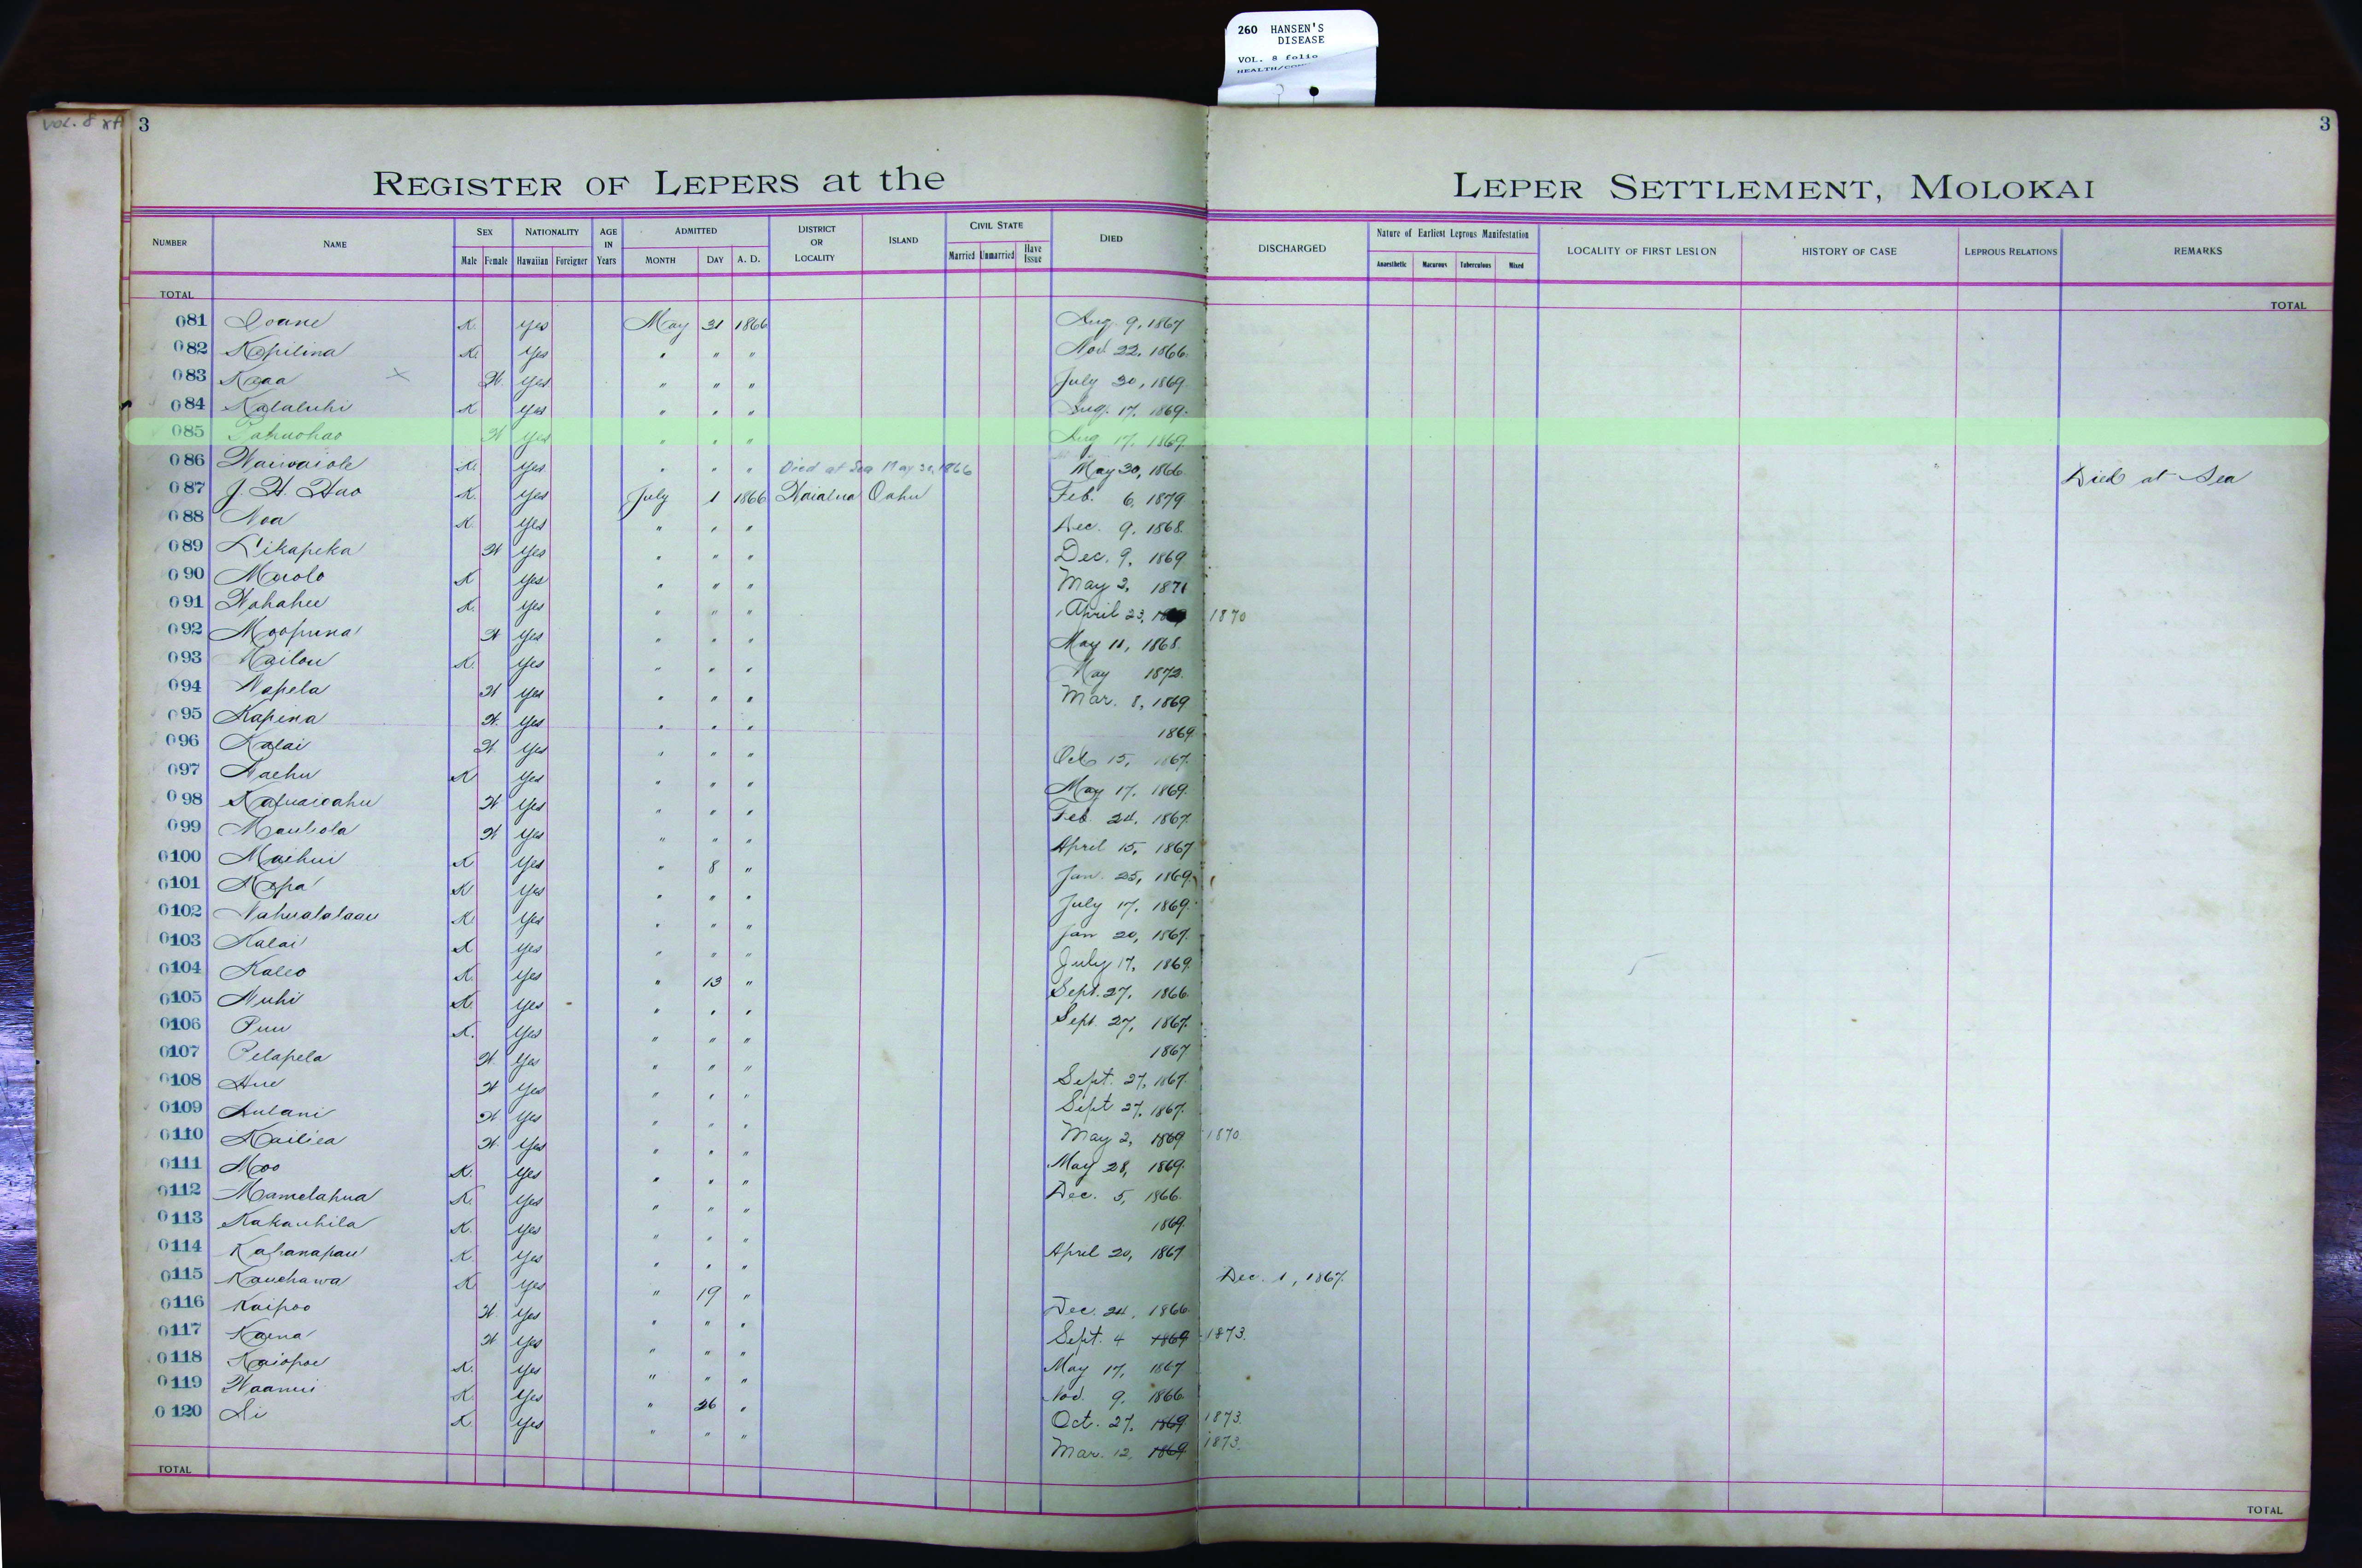 260 HANSEN'S
DISEASE
VOL. 8 folio
VOL. 8
3
3
REGISTER OF LEPERS at the LEPER SETTLEMENT, MOLOKAI
NUMBER NAME SEX Male Female NATIONALITY Hawaiian Foreigner AGE IN Years ADMITTED MONTH DAY A. D. DISTRICT OR LOCALITY ISLAND CIVIL STATE Married Unmarried Have Issue DIED DISCHARGED Nature of Earliest Leprous Manifestation Anaesthetic Macurous Tuberculous Mixed LOCALITY OF FIRST LESION HISTORY OF CASE LEPROUS RELATIONS REMARKS
TOTAL TOTAL
081 Ioane K. Yes May 31 1866 Aug. 9, 1867
082 Kapilina K. Yes " " " Nov. 22, 1866.
083 Kaaa X W. Yes " " " July 30, 1869.
084 Kalaluhi K Yes " " " Aug. 17, 1869.
085 W Yes " " " Aug 17, 1869.
086 Waiwaiole K. Yes " " " Died at Sea May 30, 1866 May 30, 1866. Died at Sea
087 J. H. Hao K. Yes July 1 1866 Waialua Oahu Feb. 6, 1879
088 Noa K. Yes " " " Dec. 9, 1868.
089 Likapeka W Yes " " " Dec. 9, 1869.
090 Maolo K Yes " " " May 2, 1871
091 Wahahee K. Yes " " " April 23, 1870
092 Moopuna W Yes " " " May 11, 1868.
093 Kailou K. Yes " " " May 1872.
094 Napela W Yes " " " Mar. 8, 1869
095 Kapena W. Yes " " " 1869.
096 Kalai W. Yes " " " Oct 15, 1867.
097 Naehu K Yes " " " May 17, 1869.
098 W Yes " " " Feb. 24, 1867.
099 Mauliola W Yes " " " April 15, 1867
0100 Maihui K Yes " 8 " Jan. 25, 1869.
0101 Kapa K Yes " " " July 17, 1869.
0102 Nahualalaau K. Yes " " " Jan 20, 1867.
0103 Kalai K Yes " " " July 17, 1869.
0104 Kaleo K. Yes " 13 " Sept. 27, 1866.
0105 Nuhi K. Yes " " " Sept. 27, 1867.
0106 Puu K. Yes " " " 1867
0107 Pelapela W Yes " " " Sept. 27, 1867.
0108 Hue W Yes " " " Sept 27, 1867.
0109 Lulani W. Yes " " " May 2, 1869 1870.
0110 Kailiea W. Yes " " " May 28, 1869.
0111 Moo K. Yes " " " Dec. 5, 1866.
0112 Mamelahua K. Yes " " " 1869.
0113 Kakauhila K. Yes " " " April 20, 1867
0114 Kahanapau K. Yes " " " Dec. 1, 1867.
0115 Kauehawa K. Yes " 19 " Dec. 24, 1866.
0116 Kaipoo W. Yes " " " Sept. 4 1869 1873.
0117 Kaena W Yes " " " May 17, 1867
0118 Kaiopoe K. Yes " " " Nov. 9, 1866.
0119 Waanui K. Yes " 26 " Oct. 27, 1869 1873.
0120 Li K. Yes " " " Mar. 12, 1869 1873.
TOTAL TOTAL